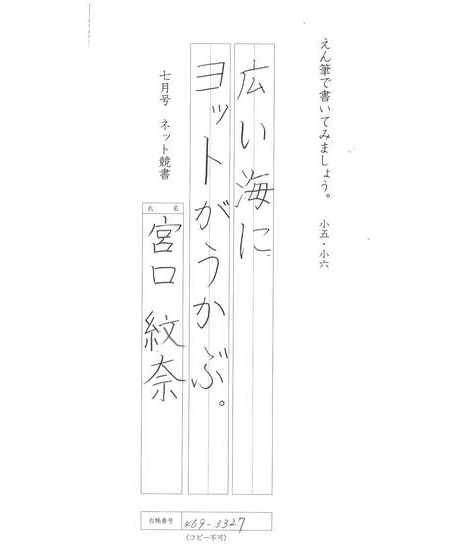 えん筆で書いてみましょう。 小五・小六
広い海に
ヨットがうかぶ。
七月号 ネット競書
氏名
宮口 紋奈
台帳番号 469-3327
(コピー不可)